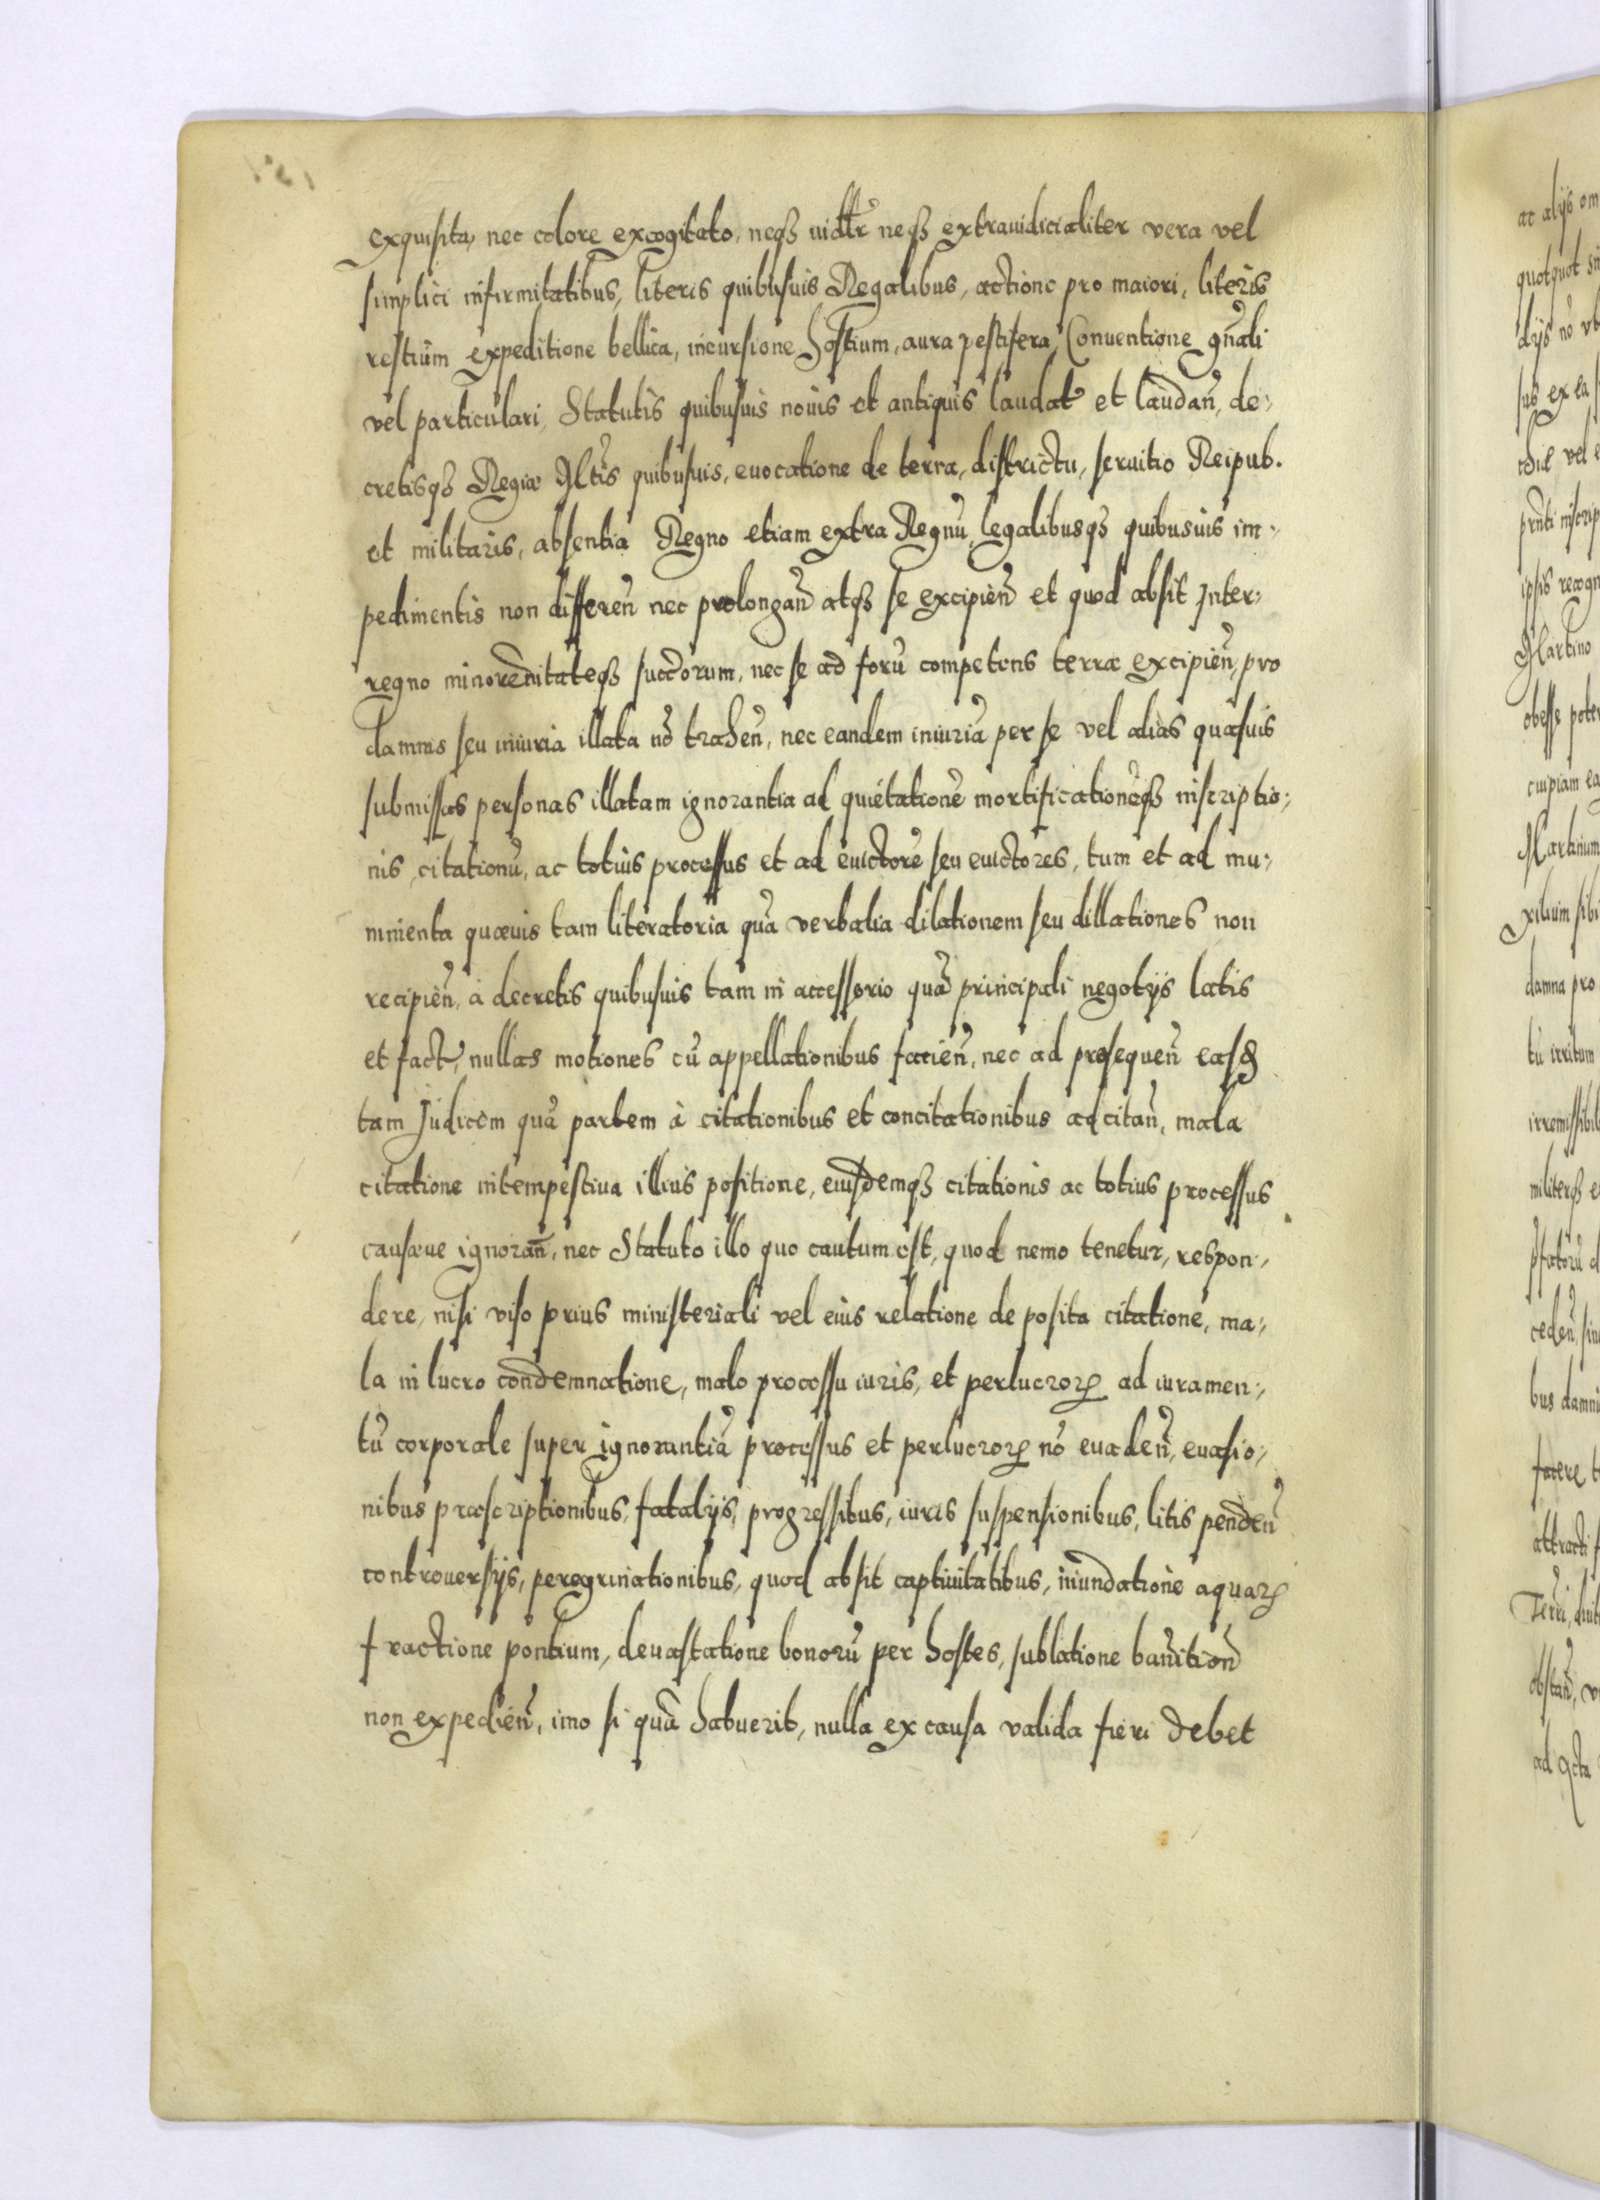 exquisita, nec colore excogitato, neqȝ iudltr neqȝ extraiudicialiter vera vel
simplici infirmitatibus, literis quibusuis Regalibus, actione pro maiori, literis
restium expeditione bellica, incursione hostium, aura pestifera, Conuentione gn̄ali
vel particulari, Statutis quibusuis nouis et antiquis laudat et laudan̄, de-
cretisqȝ Regiæ Mtis quibusuis, euocatione de terra, districtu, seruitio Reipub.
et militaris, absentia Regno etiam extra Regnū, legalibusqȝ quibusuis im-
pedimentis non differen̄ nec prolongan̄ atqȝ se excipien̄ et quod absit Inter-
regno minorenitateqȝ succorum, nec se ad forū competens terræ excipien̄, pro
damnis seu iniuria illata nō trahen̄, nec eandem iniuriā per se vel alias quasuis
submissas personas illatam ignorantia ad quietationē mortificationēqȝ inscriptio-
nis, citationū, ac totius processus et ad euictorē seu euictores, tum et ad mu-
nimenta quæuis tam literatoria quā verbalia dilationem seu dillationes non
recipien̄, à decretis quibusuis tam in accessorio quā principali negotijs latis
et fact, nullas motiones cū appellationibus facien̄, nec ad prosequen̄ easd
tam Judicem quā partem à citationibus et concitationibus adcitan̄, mala
citatione intempestiua illius positione, eiusdemqȝ citationis ac totius processus
causæue ignoran̄, nec Statuto illo quo cautum est, quod nemo tenetur, respon-
dere, nisi viso prius ministeriali vel eius relatione de posita citatione, ma-
la in lucro condemnatione, malo processu iuris, et perlucroꝝ ad iuramen-
tū corporale super ignorantiā processus et perlucroꝝ nō euaden̄, euasio-
nibus præscriptionibus, fatalijs, progressibus, iuris suspensionibus, litis penden̄
controuersijs, peregrinationibus, quod absit captiuitatibus, inundatione aquaꝝ
fractione pontium, deuastatione bonorū per hostes, sublatione bannition̄
non expedien̄, imo si quā habuerit, nulla ex causa valida fieri debet